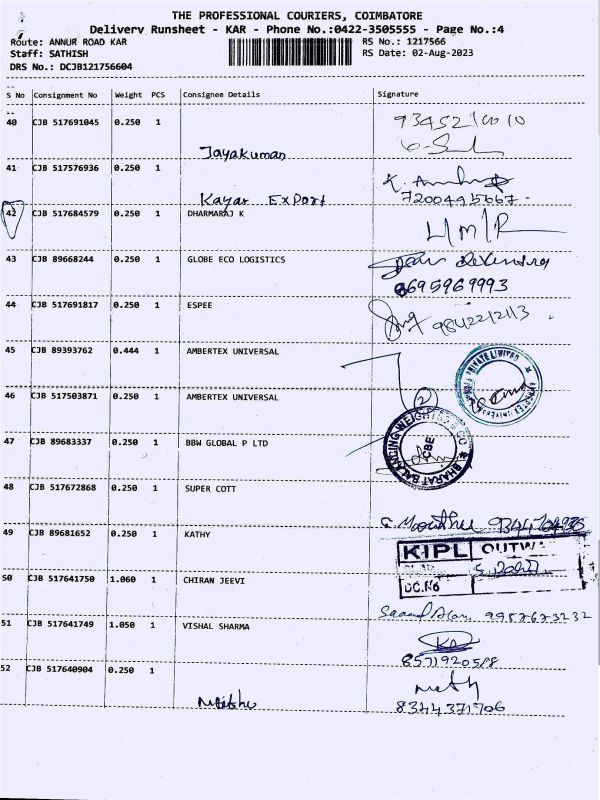 THE PROFESSIONAL COURIERS, COIMBATORE
Delivery Runsheet - KAR - Phone No.:0422-3505555 - Page No.:4
Route: ANNUR ROAD KAR RS No.: 1217566
Staff: SATHISH RS Date: 02-Aug-2023
DRS No.: DCJB121756604
S No Consignment No Weight PCS Consignee Details Signature
40 CJB 517691045 0.250 1
Jayakumar
41 CJB 517576936 0.250 1
Kayar Export
7200495667
42 CJB 517684579 0.250 1 DHARMARAJ K
43 CJB 89668244 0.250 1 GLOBE ECO LOGISTICS
8695969993
44 CJB 517691817 0.250 1 ESPEE
9842212113
45 CJB 89393762 0.444 1 AMBERTEX UNIVERSAL
PRIVATE LIMITED
46 CJB 517503871 0.250 1 AMBERTEX UNIVERSAL
2
47 CJB 89683337 0.250 1 BBW GLOBAL P LTD
BHARAT BALANCING WEIGHTS
CBE
48 CJB 517672868 0.250 1 SUPER COTT
49 CJB 89681652 0.250 1 KATHY
KIPL OUTW
DC.No
50 CJB 517641750 1.060 1 CHIRAN JEEVI
51 CJB 517641749 1.050 1 VISHAL SHARMA
8571920518
52 CJB 517640904 0.250 1
8344371706